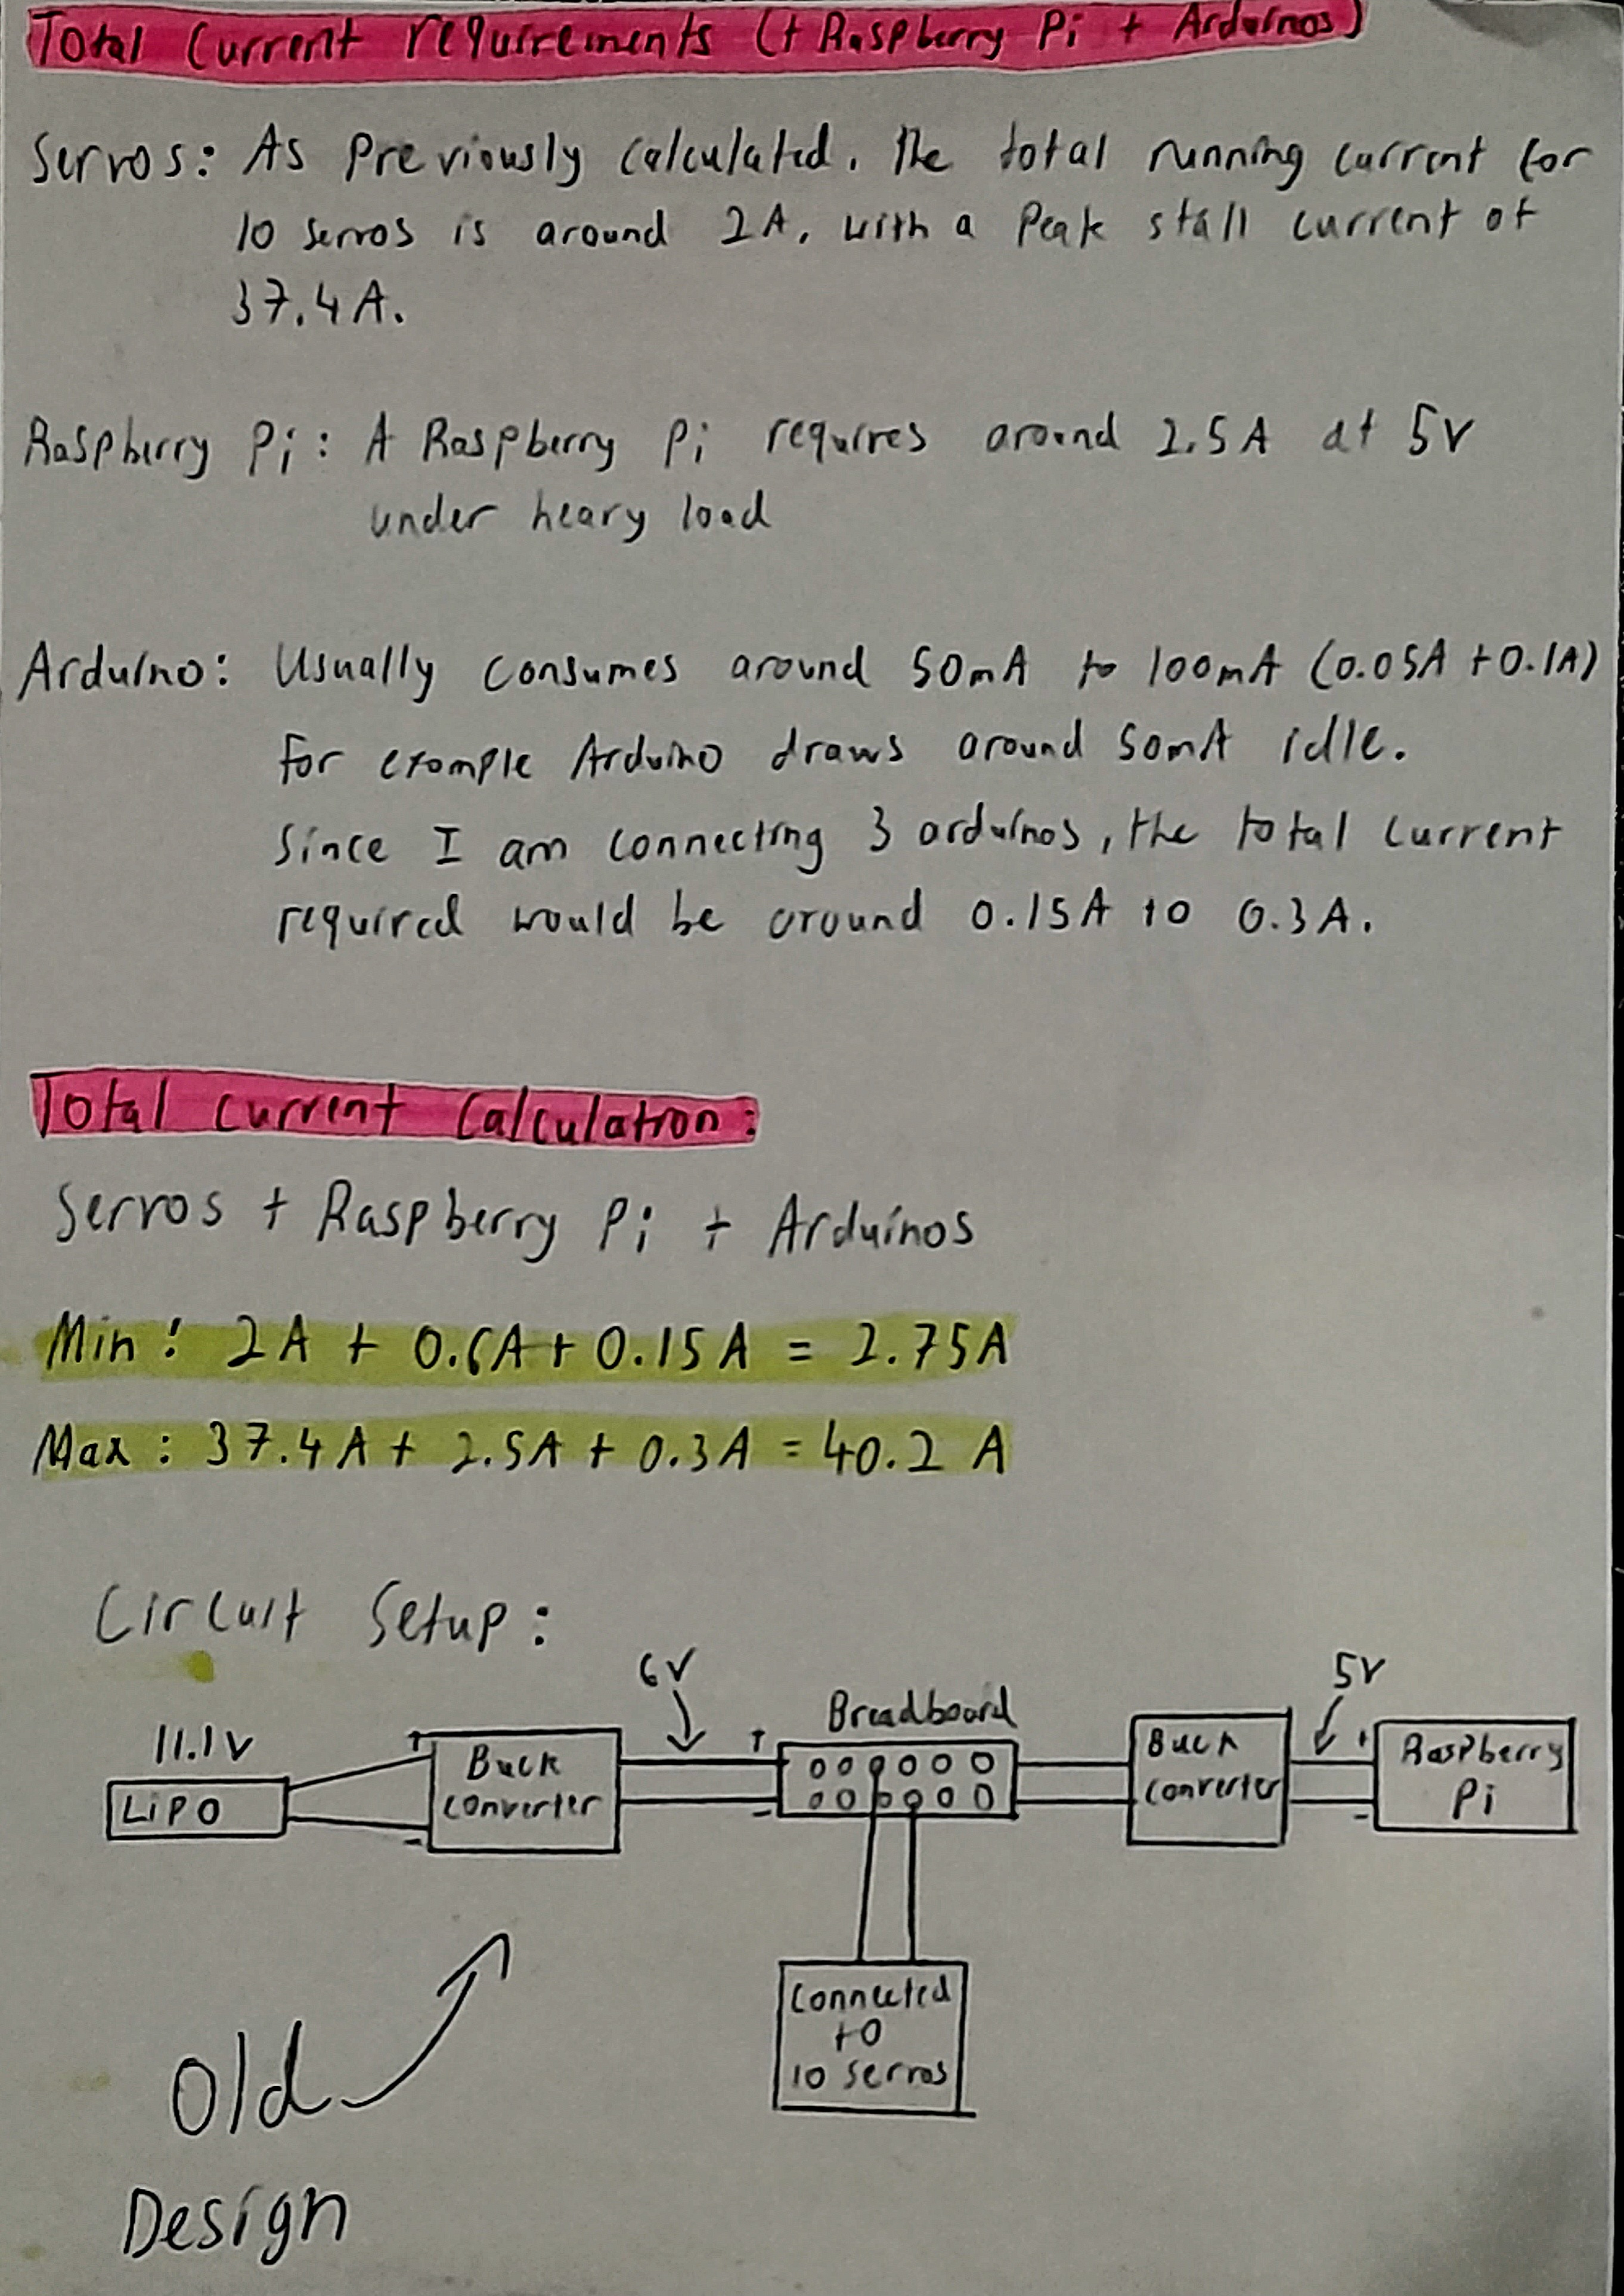 Total Current requirements (+ Raspberry Pi + Arduinos)
Servos: As previously calculated, the total running current for
10 servos is around 2A, with a peak stall current of
37.4A.
Raspberry Pi: A Raspberry Pi requires around 2.5A at 5V
under heavy load
Arduino: Usually consumes around 50mA to 100mA (0.05A +0.1A)
for example Arduino draws around 50mA idle.
Since I am connecting 3 arduinos, the total current
required would be around 0.15A to 0.3A.
Total current calculation:
Servos + Raspberry Pi + Arduinos
Min: 2A + 0.6A + 0.15A = 2.75A
Max: 37.4A + 2.5A + 0.3A = 40.2 A
Circuit Setup:
6V
5V
Breadboard
11.1V
+ + +
LiPO
Buck
converter
Buck
converter
Raspberry
Pi
- - -
Connected
to
10 servos
Old
Design